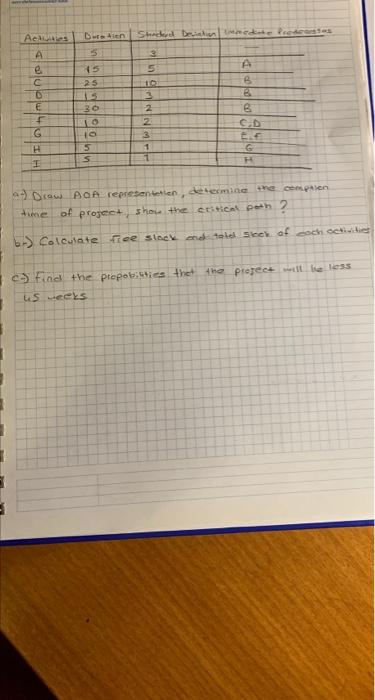 Activities Duration Standard Deviation Immediate Predecessors
A 5 3 —
B 15 5 A
C 25 10 B
D 15 3 B
E 30 2 B
F 10 2 C,D
G 10 3 E,F
H 5 1 G
I 5 1 H
a-) Draw AOA representation, determine the comption
time of project, show the critical path ?
b-) Calculate free slack and total slack of each activities
c-) find the propabilities that the project will be less
45 weeks